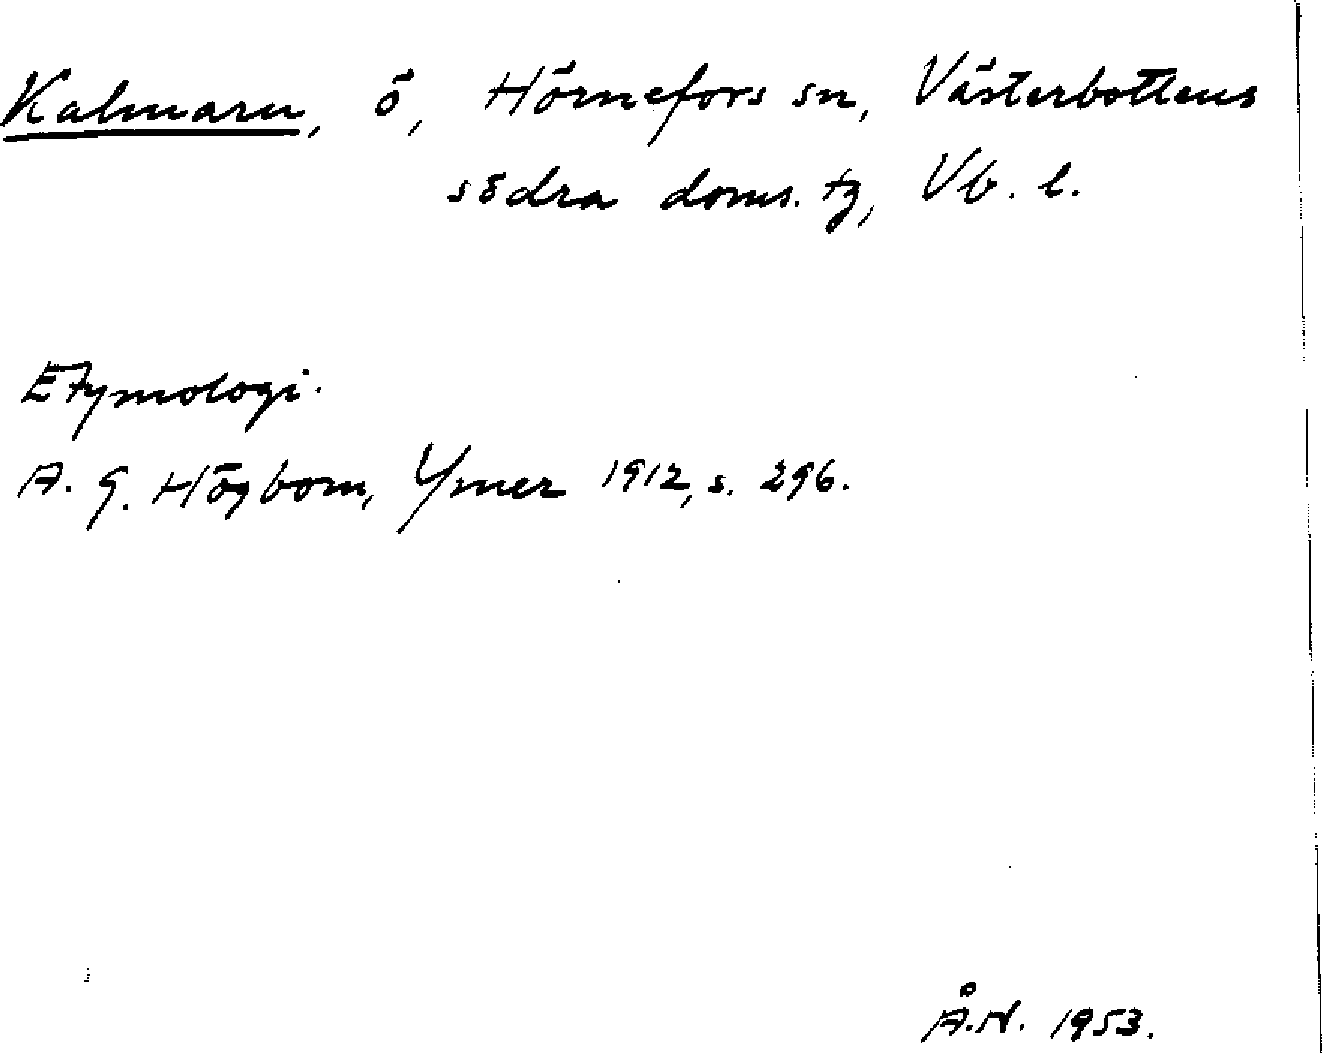 Kalmaru, ö, Hörnefors sn, Västerbottens
södra doms. tg, Vb. l.
Etymologi.
A. G. Högbom, Ymer 1912, s. 296.
Å.N. 1953.